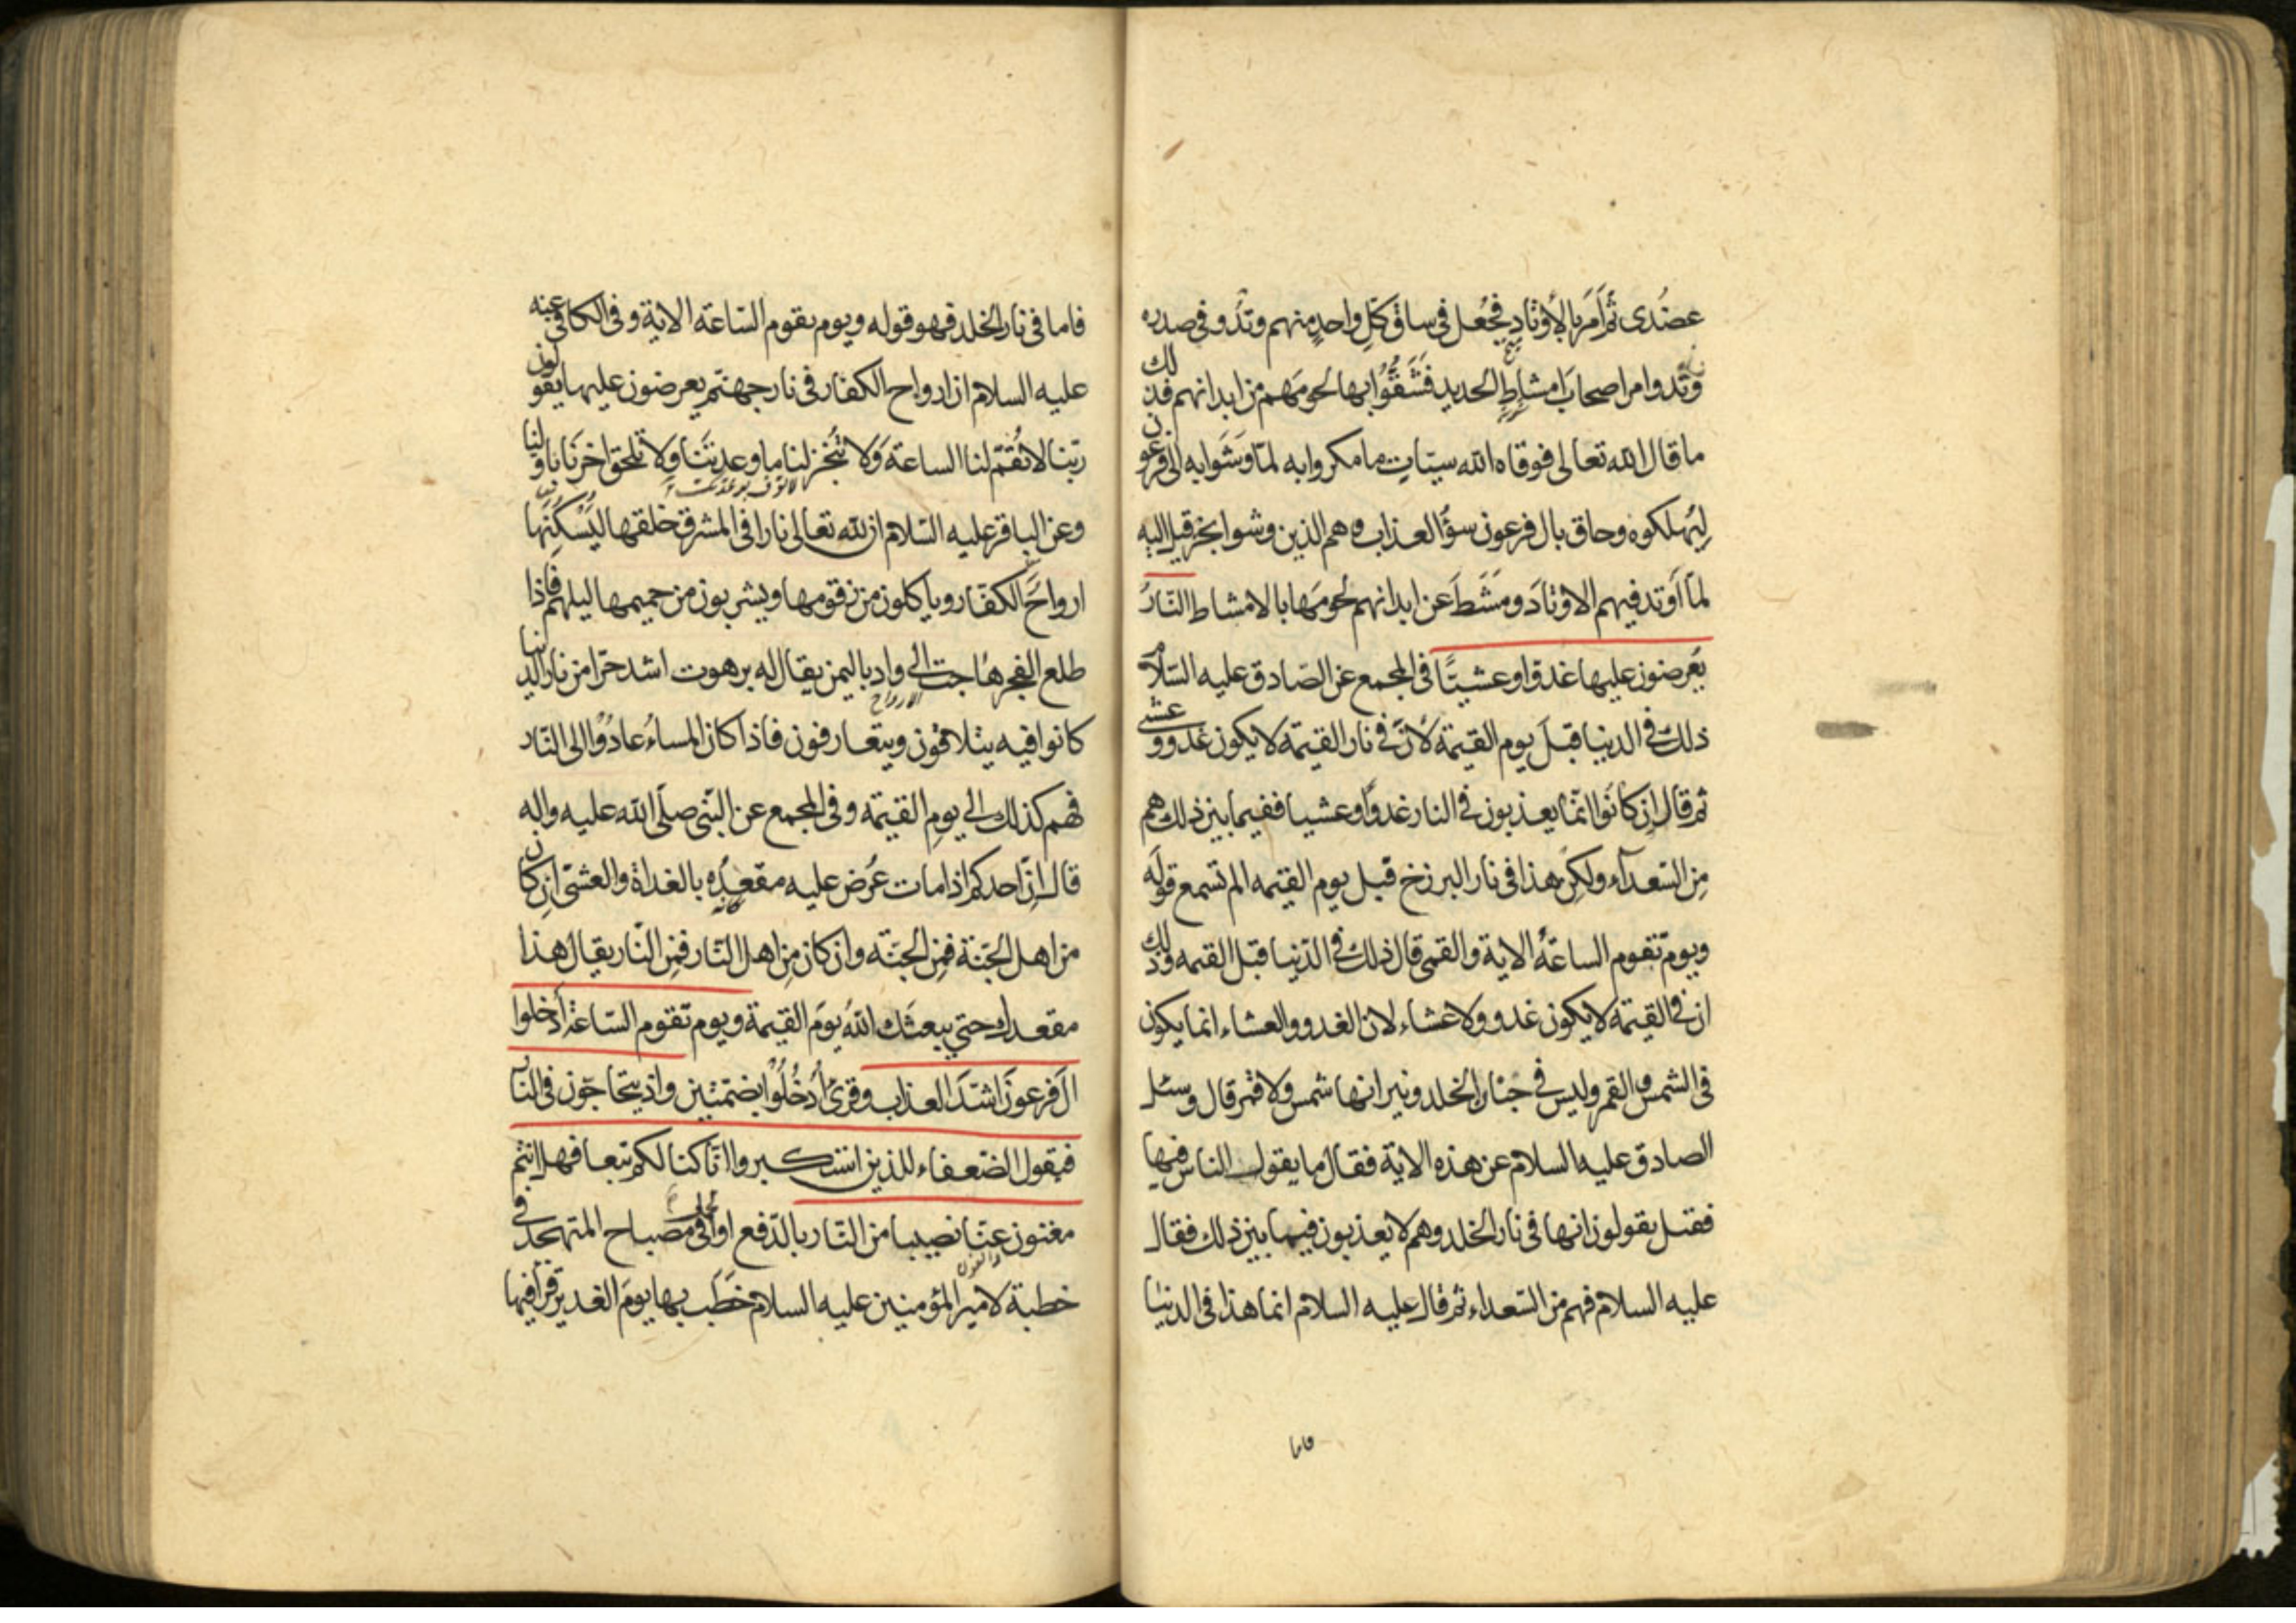 عضُدى ثم اَمَرَ بالاَوْتادِ فجُعل فى ساق كلّ واحدٍ منهم وتدُ و فى صدره
وتد وامر اصحابَ امشاطِ الحديد فشَقُّوا بها لحومَهم من ابدانهم فذلك
ما قال الله تعالى فوقاه الله سيّئاتِ ما مكروا به لمّا وَشَوا به الى فرعون
ليُهلكوه وحاق بال فرعون سؤُ العذاب وهم الذين وشوا بخزقيل اليه
لمّا اَوتد فيهم الاوتادَ ومَشَطَ عن ابدانهم لحومَها بالامشاط النّارُ
يُعرضون عليها غدوّا وعشيّا فى المجمع عن الصّادق عليه السّلام
ذلك فى الدنيا قبلَ يوم القيمة لاَنّ فى نار القيمة لا يكون غدو وعشى
ثم قال اِن كانُوا انّما يعذبون فى النار غدوّا وعشيا ففيما بين ذلك هم
مِن السّعدآء ولكِن هذا فى نار البرزخ قبل يوم القيمه الم تسمع قولَه
ويومَ تقوم الساعةُ الاية والقمى قال ذلك فى الدّنيا قبل القيمه وذلك
ان فى القيمة لا يكون غدو ولا عشاء لان الغدو والعشاء انما يكون
فى الشمس والقمر وليس فى جنان الخلد ونيرانها شمس ولا قمر قال وسئل
الصادق عليه السلام عن هذه الاية فقال ما يقول الناس فيها
فقيل يقولون انها فى نار الخلد وهم لا يعذبون فيما بين ذلك فقال
عليه السلام فهم من السّعداء ثم قال عليه السلام انما هذا فى الدنيا
فاما
فاما فى نار الخلد فهو قوله ويوم يقوم السّاعة الاية وفى الكافى عنه
عليه السلام ان ارواح الكفار فى نار جهنّم يعرضون عليها يقولون
ربّنا لا تُقمْ لنا الساعة وَلا تُنجز لنا ما وعدتنَا وَلا تلحق اخرَنا باولنا
وعن الباقر عليه السّلام ان لله تعالى نارا فى المشرق خلقها ليُسْكِنَها
ارواحَ الكفّار وياكلون من زقومها ويشربون من حميمها ليلهم فاذا
طلع الفجر هاجت الى وادٍ باليمن يقال له برهوت اشد حرّا من نار الدنيا
كانوا فيه يتلاقون ويتعارفون فاذا كان المساءُ عادُوْا الى النّار
فهم كذلك الى يومِ القيمة وفى المجمع عن النّبى صلّى الله عليه واله
قال اِنّ احدكم اذا مات عُرض عليه مقعدُه بالغداة والعشىّ اِن كان
من اهل الجَنّة فمِن الجَنّة وان كان مِن اهل النّار فمِن النّار يقال هذا
مقعدك حتى يبعثَك اللهُ يومَ القيمة ويوم تقوم السّاعةُ اُدْخلوا
الَ فرعونَ اشدّ العذاب وقرئ اُدْخُلُوْا بضمّتين واذ يتحاجّون فى النار
فيقول الضّعفاء للذين استكبروا انّا كنا لكم تبعا فهل انتم
مغنون عنّا نصيبا من النّار بالدّفع او الحمل فى مصباح المتهجد فى
خطبة لامير المؤمنين عليه السلام خطَب بها يومَ الغدير قرأ فيها